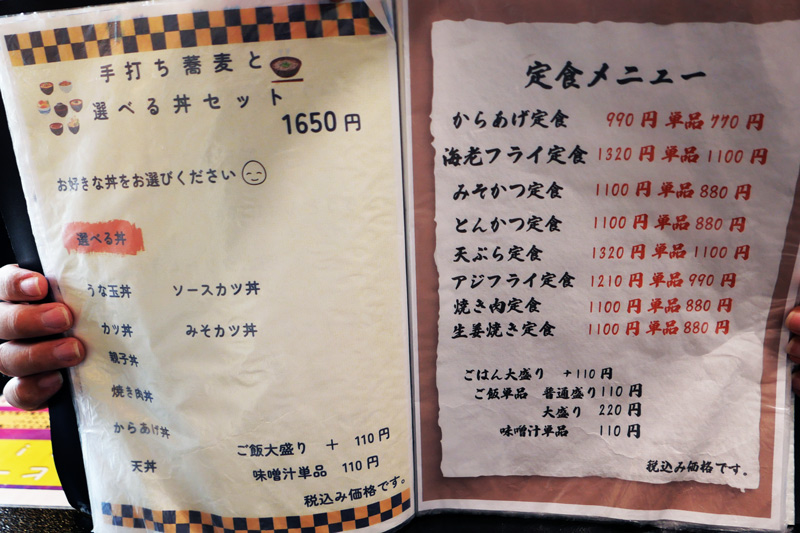 手打ち蕎麦と
選べる丼セット
1650円
お好きな丼をお選びください
選べる丼
うな玉丼 ソースカツ丼
カツ丼 みそカツ丼
親子丼
焼き肉丼
からあげ丼
天丼
ご飯大盛り + 110円
味噌汁単品 110円
税込み価格です。
定食メニュー
からあげ定食 990円 単品 770円
海老フライ定食 1320円 単品 1100円
みそかつ定食 1100円 単品 880円
とんかつ定食 1100円 単品 880円
天ぷら定食 1320円 単品 1100円
アジフライ定食 1210円 単品 990円
焼き肉定食 1100円 単品 880円
生姜焼き定食 1100円 単品 880円
ごはん大盛り +110円
ご飯単品 普通盛り 110円
大盛り 220円
味噌汁単品 110円
税込み価格です。